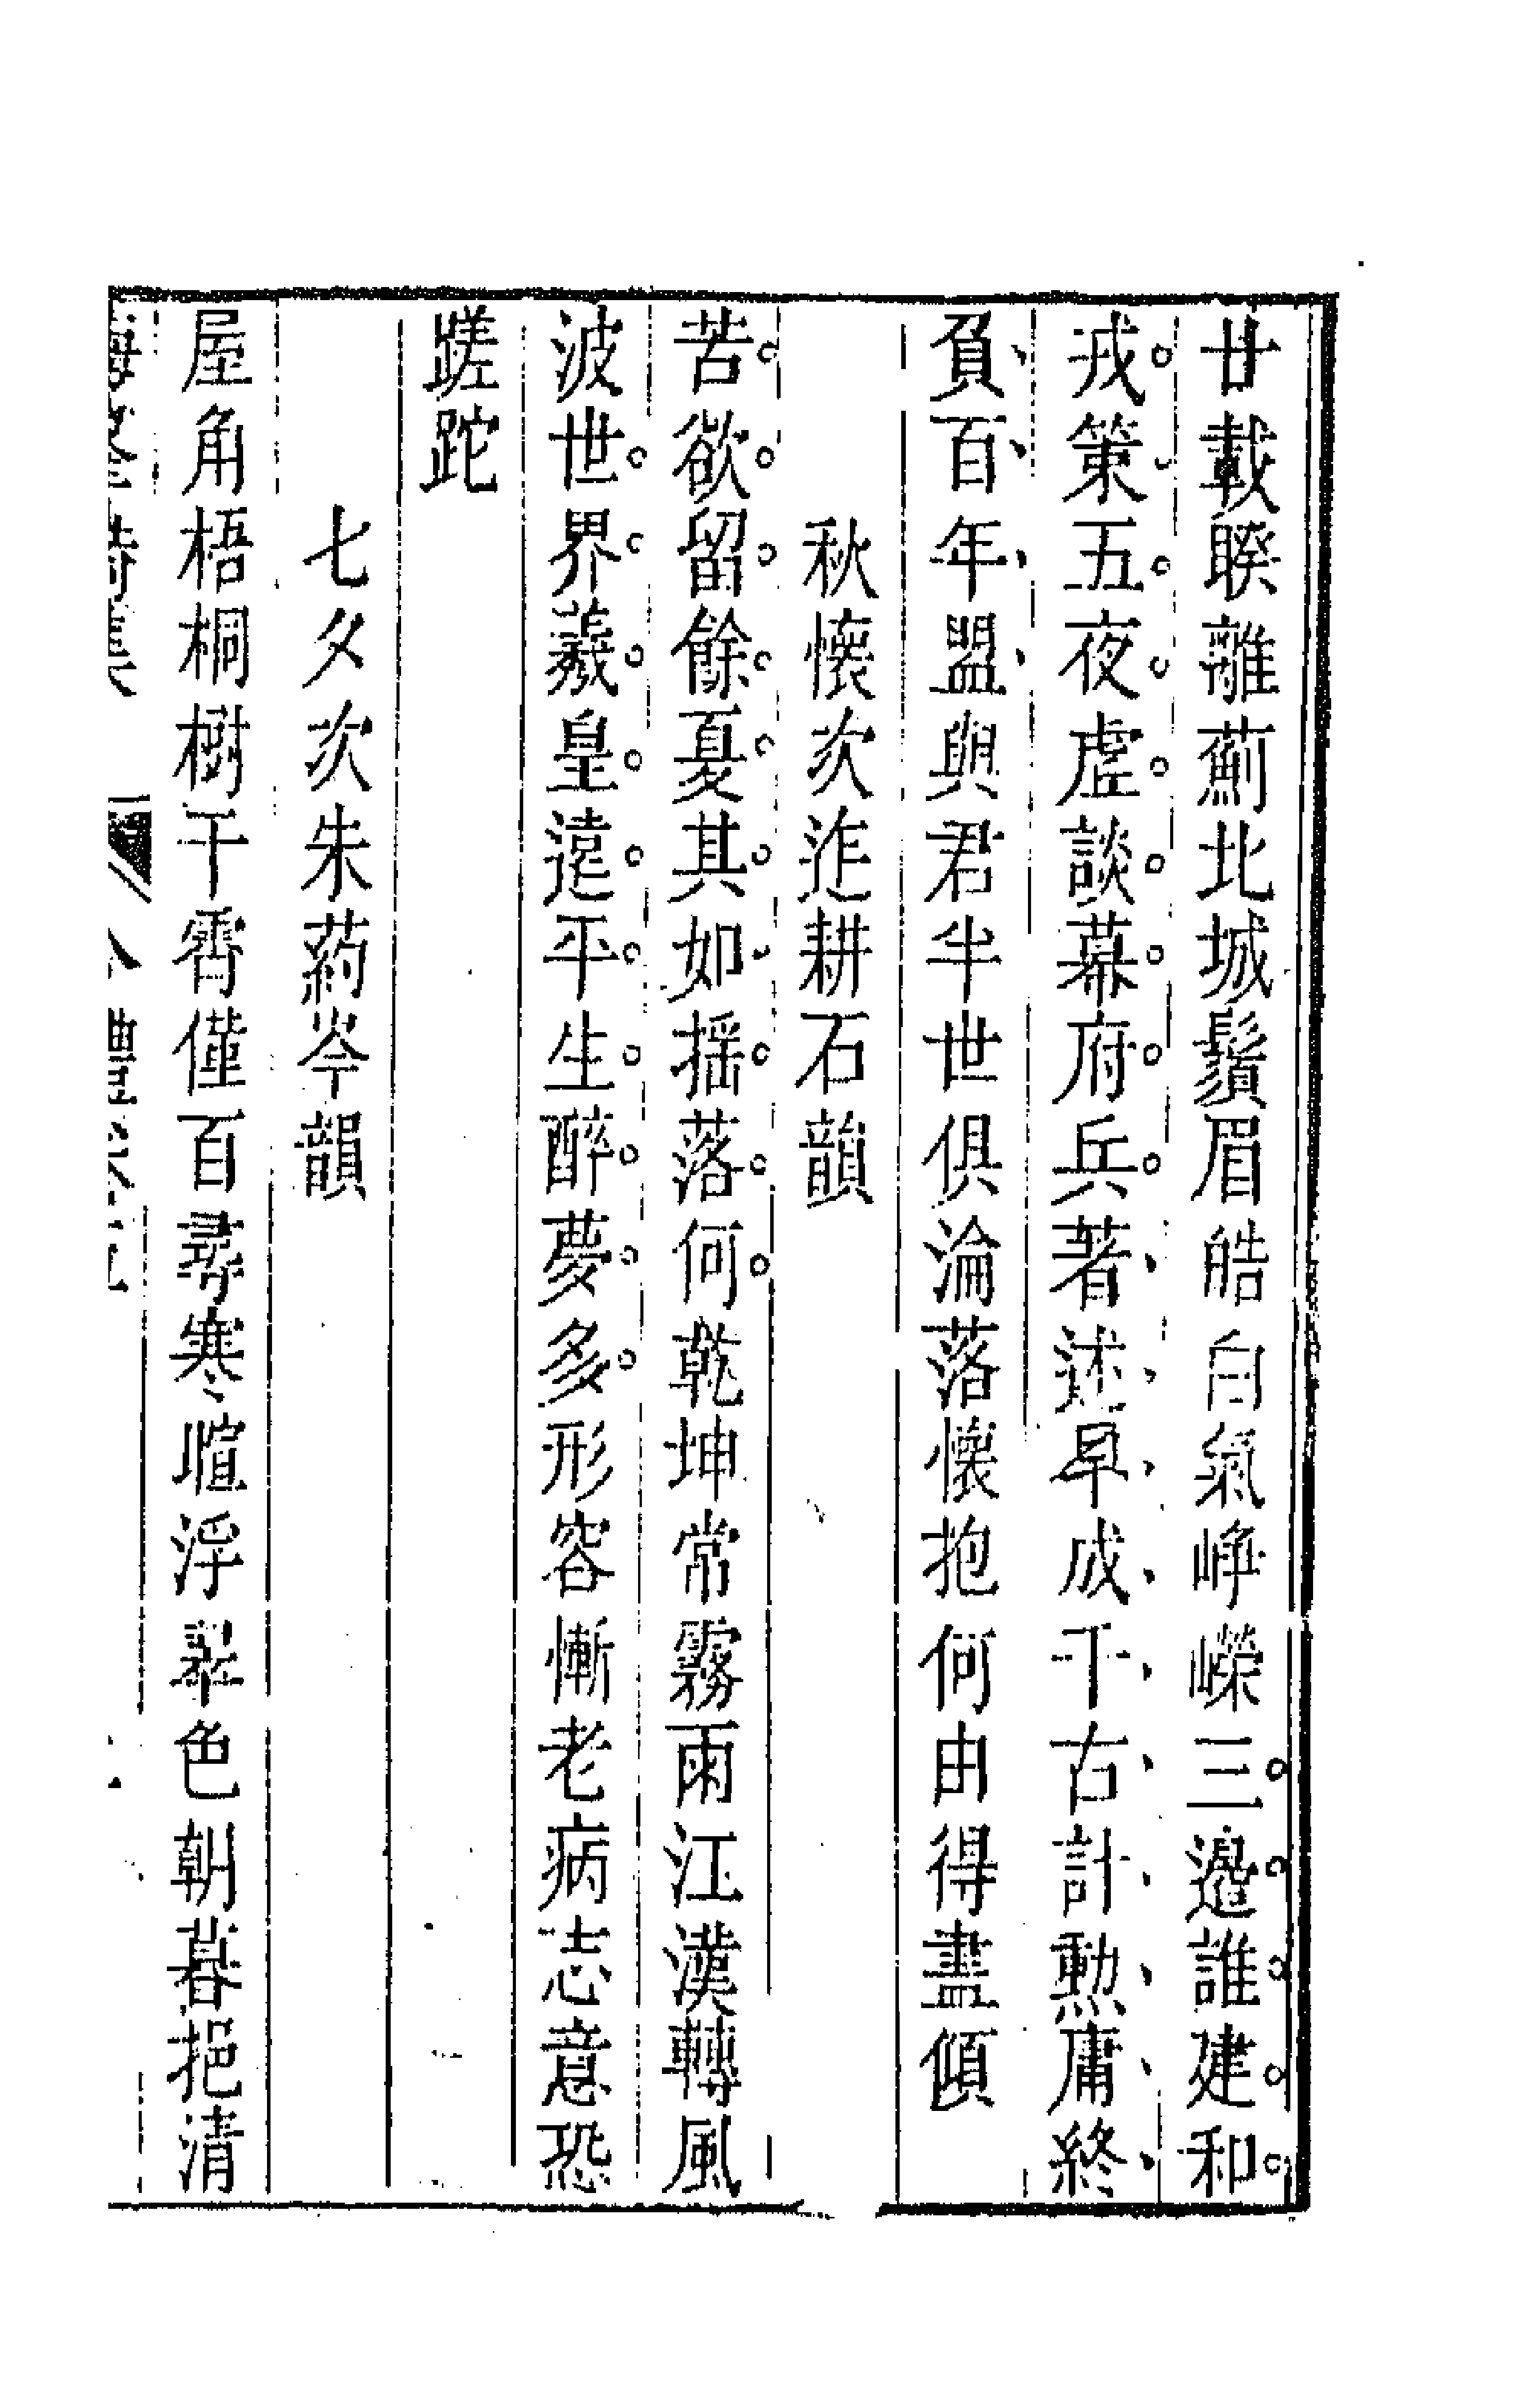 廿載睽離薊北城鬚眉皓白氣崢嶸三邊誰建和
戎策五夜虛談幕府兵著述早成千古計勳庸終
負百年盟與君半世俱淪落懷抱何由得盡傾
秋懷次迮耕石韻
苦欲留餘夏其如搖落何乾坤常霧雨江漢轉風
波世界羲皇遠平生醉夢多形容慚老病志意恐
蹉跎
七夕次朱葯岑韻
屋角梧桐樹干霄僅百尋寒暄浮翠色朝暮挹清